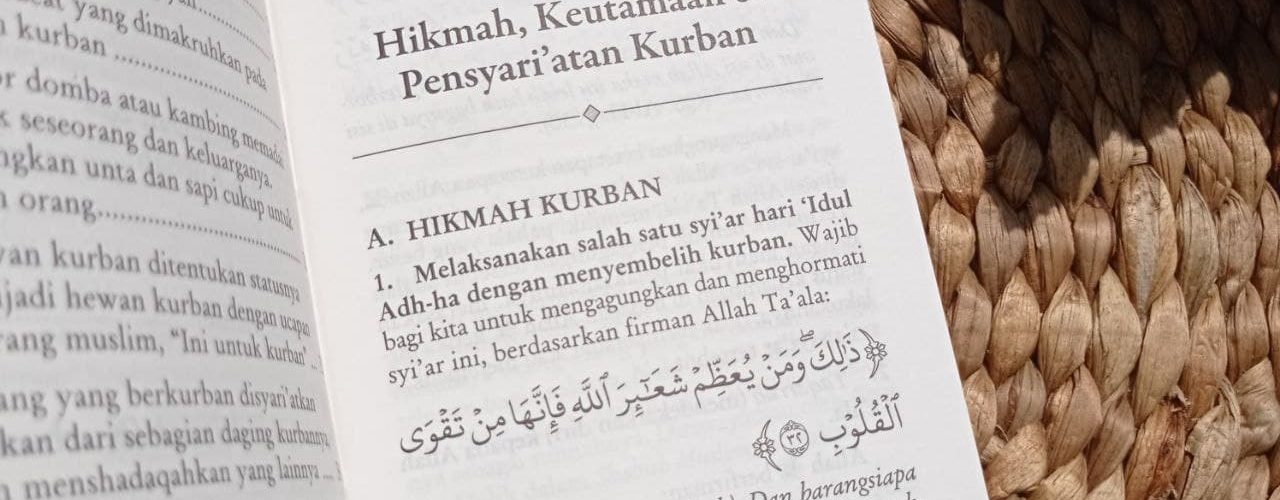 yang dimakruhkan pada
kurban
domba atau kambing
seseorang dan keluarganya.
unta dan sapi cukup untuk
orang
kurban ditentukan statusnya
hewan kurban dengan ucapan
muslim, “Ini untuk kurban” ...
yang berkurban disyari’atkan
dari sebagian daging kurbannya
menshadaqahkan yang lainnya ...
Hikmah, Keutamaan
Pensyari’atan Kurban
A. HIKMAH KURBAN
1. Melaksanakan salah satu syi’ar hari ‘Idul
Adh-ha dengan menyembelih kurban. Wajib
bagi kita untuk mengagungkan dan menghormati
syi’ar ini, berdasarkan firman Allah Ta’ala:
﴿ذَٰلِكَۖ وَمَن يُعَظِّمۡ شَعَٰٓئِرَ ٱللَّهِ فَإِنَّهَا مِن تَقۡوَى
ٱلۡقُلُوبِ ٣٢﴾
Dan barangsiapa